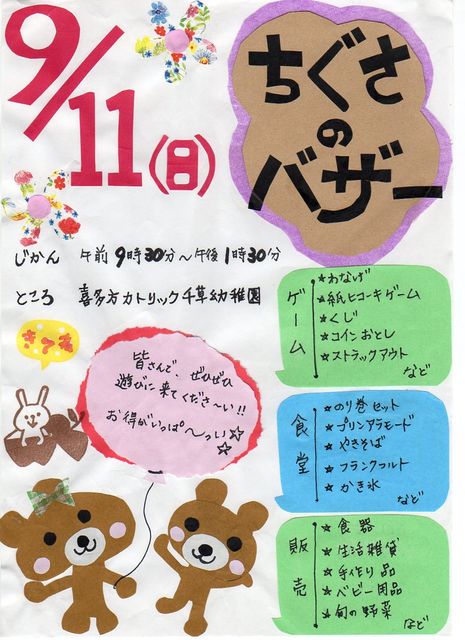 9/11(日)
ちぐさ
の
バザー
じかん 午前9時30分～午後1時30分
ところ 喜多方カトリック千草幼稚園
きてね
皆さんで、ぜひぜひ
遊びに来てくださ～い!!
お得がいっぱ～っい☆☆
ゲーム
★わなげ
★紙ヒコーキゲーム
★くじ
★コインおとし
★ストラックアウト
など
食堂
★のり巻セット
★プリンアラモード
★やきそば
★フランクフルト
★かき氷
など
販売
★食器
★生活雑貨
★手作り品
★ベビー用品
★旬の野菜
など